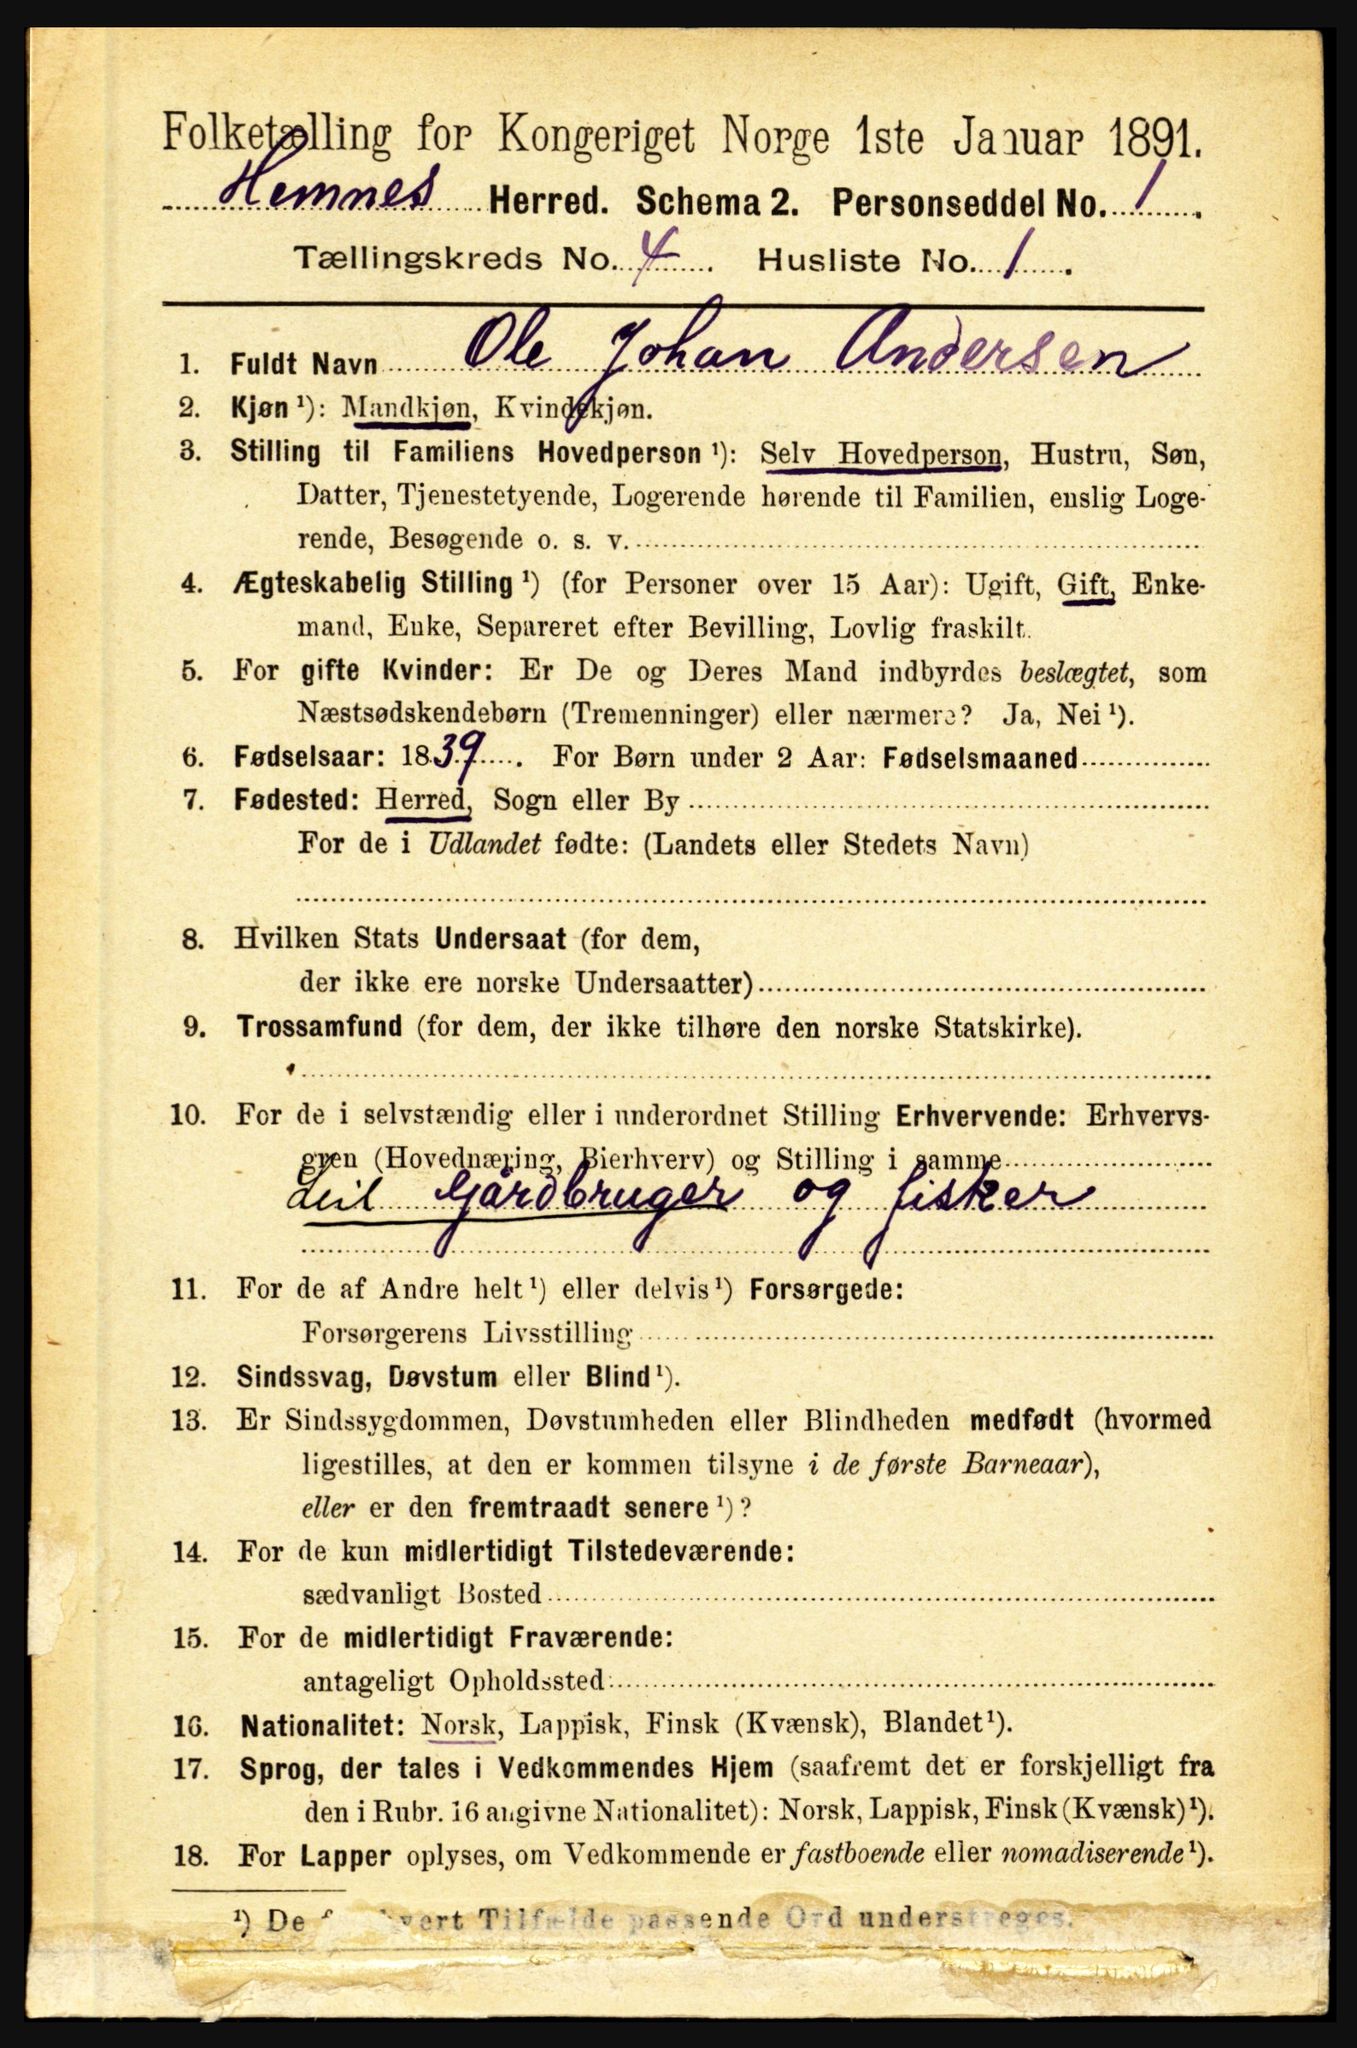 Folketælling for Kongeriget Norge 1ste Januar 1891.
Hemnes Herred. Schema 2. Personseddel No. 1.
Tællingskreds No. 4. Husliste No. 1.
1. Fuldt Navn Ole Johan Andersen
2. Kjøn ¹): Mandkjøn, Kvindekjøn.
3. Stilling til Familiens Hovedperson ¹): Selv Hovedperson, Hustru, Søn,
Datter, Tjenestetyende, Logerende hørende til Familien, enslig Loge-
rende, Besøgende o. s. v.
4. Ægteskabelig Stilling ¹) (for Personer over 15 Aar): Ugift, Gift, Enke-
mand, Enke, Separeret efter Bevilling, Lovlig fraskilt.
5. For gifte Kvinder: Er De og Deres Mand indbyrdes beslægtet, som
Næstsødskendebørn (Tremenninger) eller nærmere? Ja, Nei ¹).
6. Fødselsaar: 1839. For Børn under 2 Aar: Fødselsmaaned
7. Fødested: Herred, Sogn eller By
For de i Udlandet fødte: (Landets eller Stedets Navn)
8. Hvilken Stats Undersaat (for dem,
der ikke ere norske Undersaatter)
9. Trossamfund (for dem, der ikke tilhøre den norske Statskirke).
10. For de i selvstændig eller i underordnet Stilling Erhvervende: Erhvervs-
gren (Hovednæring, Bierhverv) og Stilling i samme
Leil Gårdbruger og fisker
11. For de af Andre helt ¹) eller delvis ¹) Forsørgede:
Forsørgerens Livsstilling
12. Sindssvag, Døvstum eller Blind ¹).
13. Er Sindssygdommen, Døvstumheden eller Blindheden medfødt (hvormed
ligestilles, at den er kommen tilsyne i de første Barneaar),
eller er den fremtraadt senere ¹)?
14. For de kun midlertidigt Tilstedeværende:
sædvanligt Bosted
15. For de midlertidigt Fraværende:
antageligt Opholdssted
16. Nationalitet: Norsk, Lappisk, Finsk (Kvænsk), Blandet ¹).
17. Sprog, der tales i Vedkommendes Hjem (saafremt det er forskjelligt fra
den i Rubr. 16 angivne Nationalitet): Norsk, Lappisk, Finsk (Kvænsk) ¹).
18. For Lapper oplyses, om Vedkommende er fastboende eller nomadiserende ¹).
¹) De hvert Tilfælde passende Ord understreges.